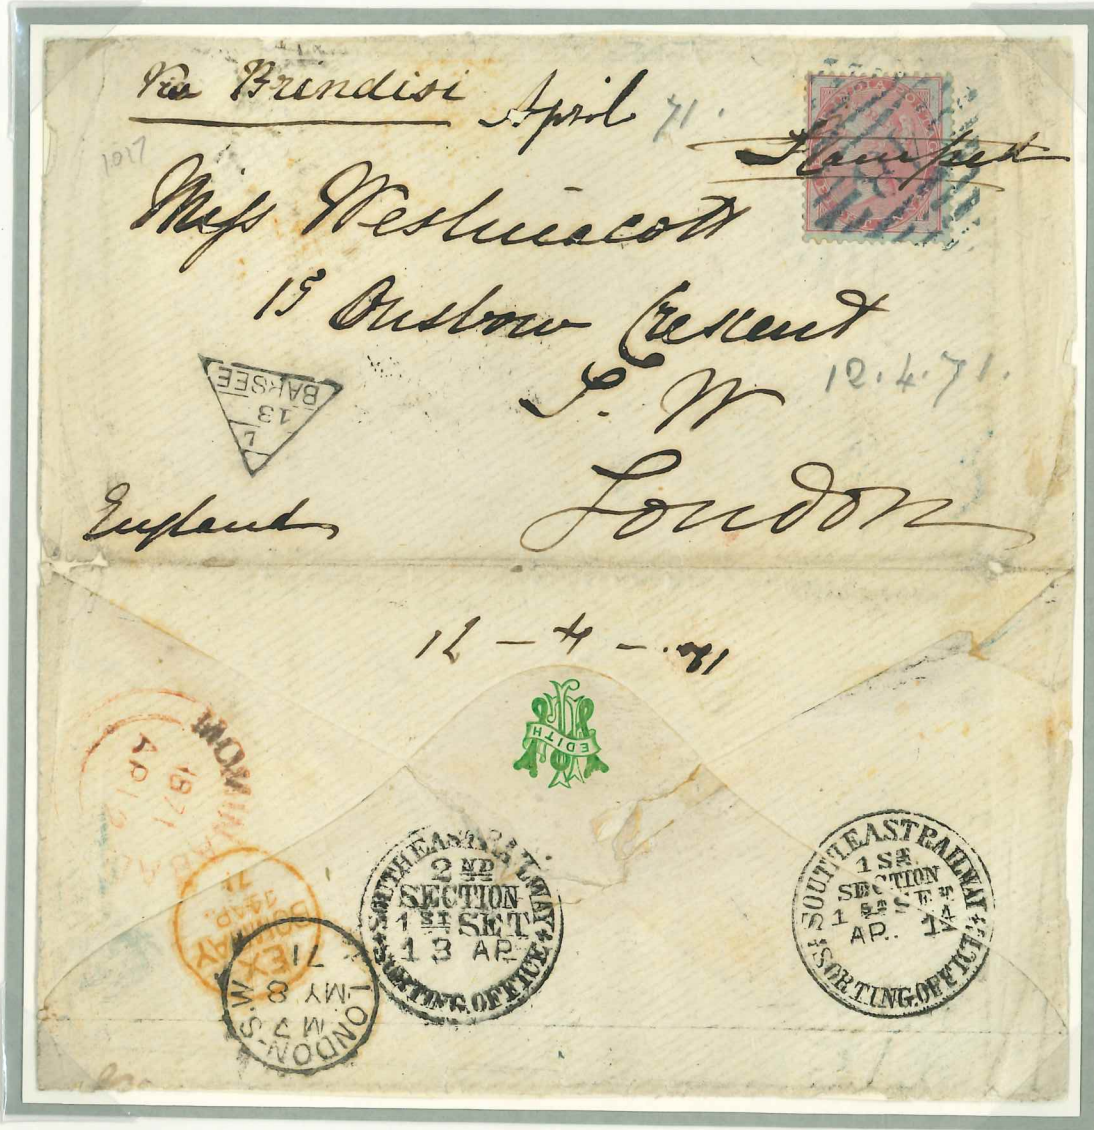 Via Brendisi April 71.
Stamped
1017
Miss Westmacott
15 Onslow Crescent
S. W
London
12.4.71.
BARSEE
13
England
12 - 4 - 71
EDITH
MOMINABAD
1871
AP 12
BOMBAY
EX
14 AP.
71
LONDON-S.W
M 7
MY 8
71
SOUTH EAST RAILWAY
2ND
SECTION
1ST SET
13 AP.
SORTING.OFFICE
SOUTH EAST RAILWAY
1ST
SECTION
1ST SET
AP. 14
SORTING.OFFICE